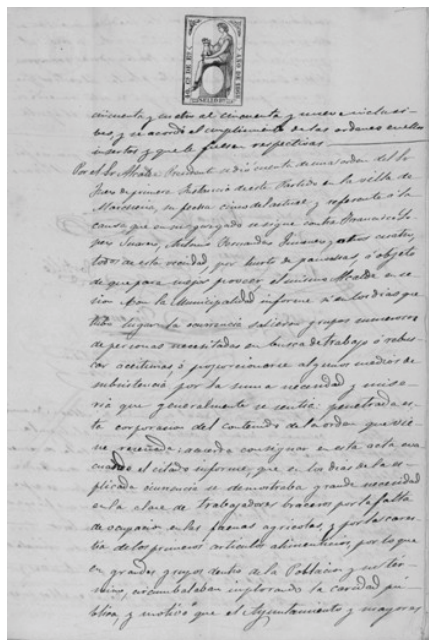 cincuenta y cuatro al cincuenta y nueve inclusi-
ves, y se acordó el cumplimiento de las ordenes en ellos
insertos y que le fuesen respectivas.
Por el Sr Alcalde Presidente se dió cuenta de una orden del Sr
Juez de primera Instancia de este Partido en la villa de
Marchena, su fecha cinco del actual, y referente á la
causa que en su juzgado se sigue contra Francisco
Suarez, Antonio Fernandez Jimenez y otros cuatro,
todos de esta vecindad, por hurto de, á objeto
de que para mejor proveer el mismo Alcalde en se-
sion con la Municipalidad informe si en los dias que
tubo lugar la ocurrencia salieron grupos numerosos
de personas necesitadas en busca de trabajo ó rebus-
car aceitunas, ó proporcionarse algunos medios de
subsistencia por la suma necesidad y mise-
ria que generalmente se sentia: penetrada es-
ta corporacion del contenido de la orden que vie-
ne reseñada; acuerda consignar en esta acta eva-
cuando el citado informe, que en los dias de la es-
plicada ocurrencia se demostraba grande necesidad
en la clase de trabajadores braceros por la falta
de ocupacion en las faenas agricolas, y por la cares-
tia de los primeros articulos alimenticios, por lo que
en grandes grupos dentro de la Poblacion y su ter-
mino, circumbalaban implorando la caridad pú-
blica, y motivó que el Ayuntamiento y mayores